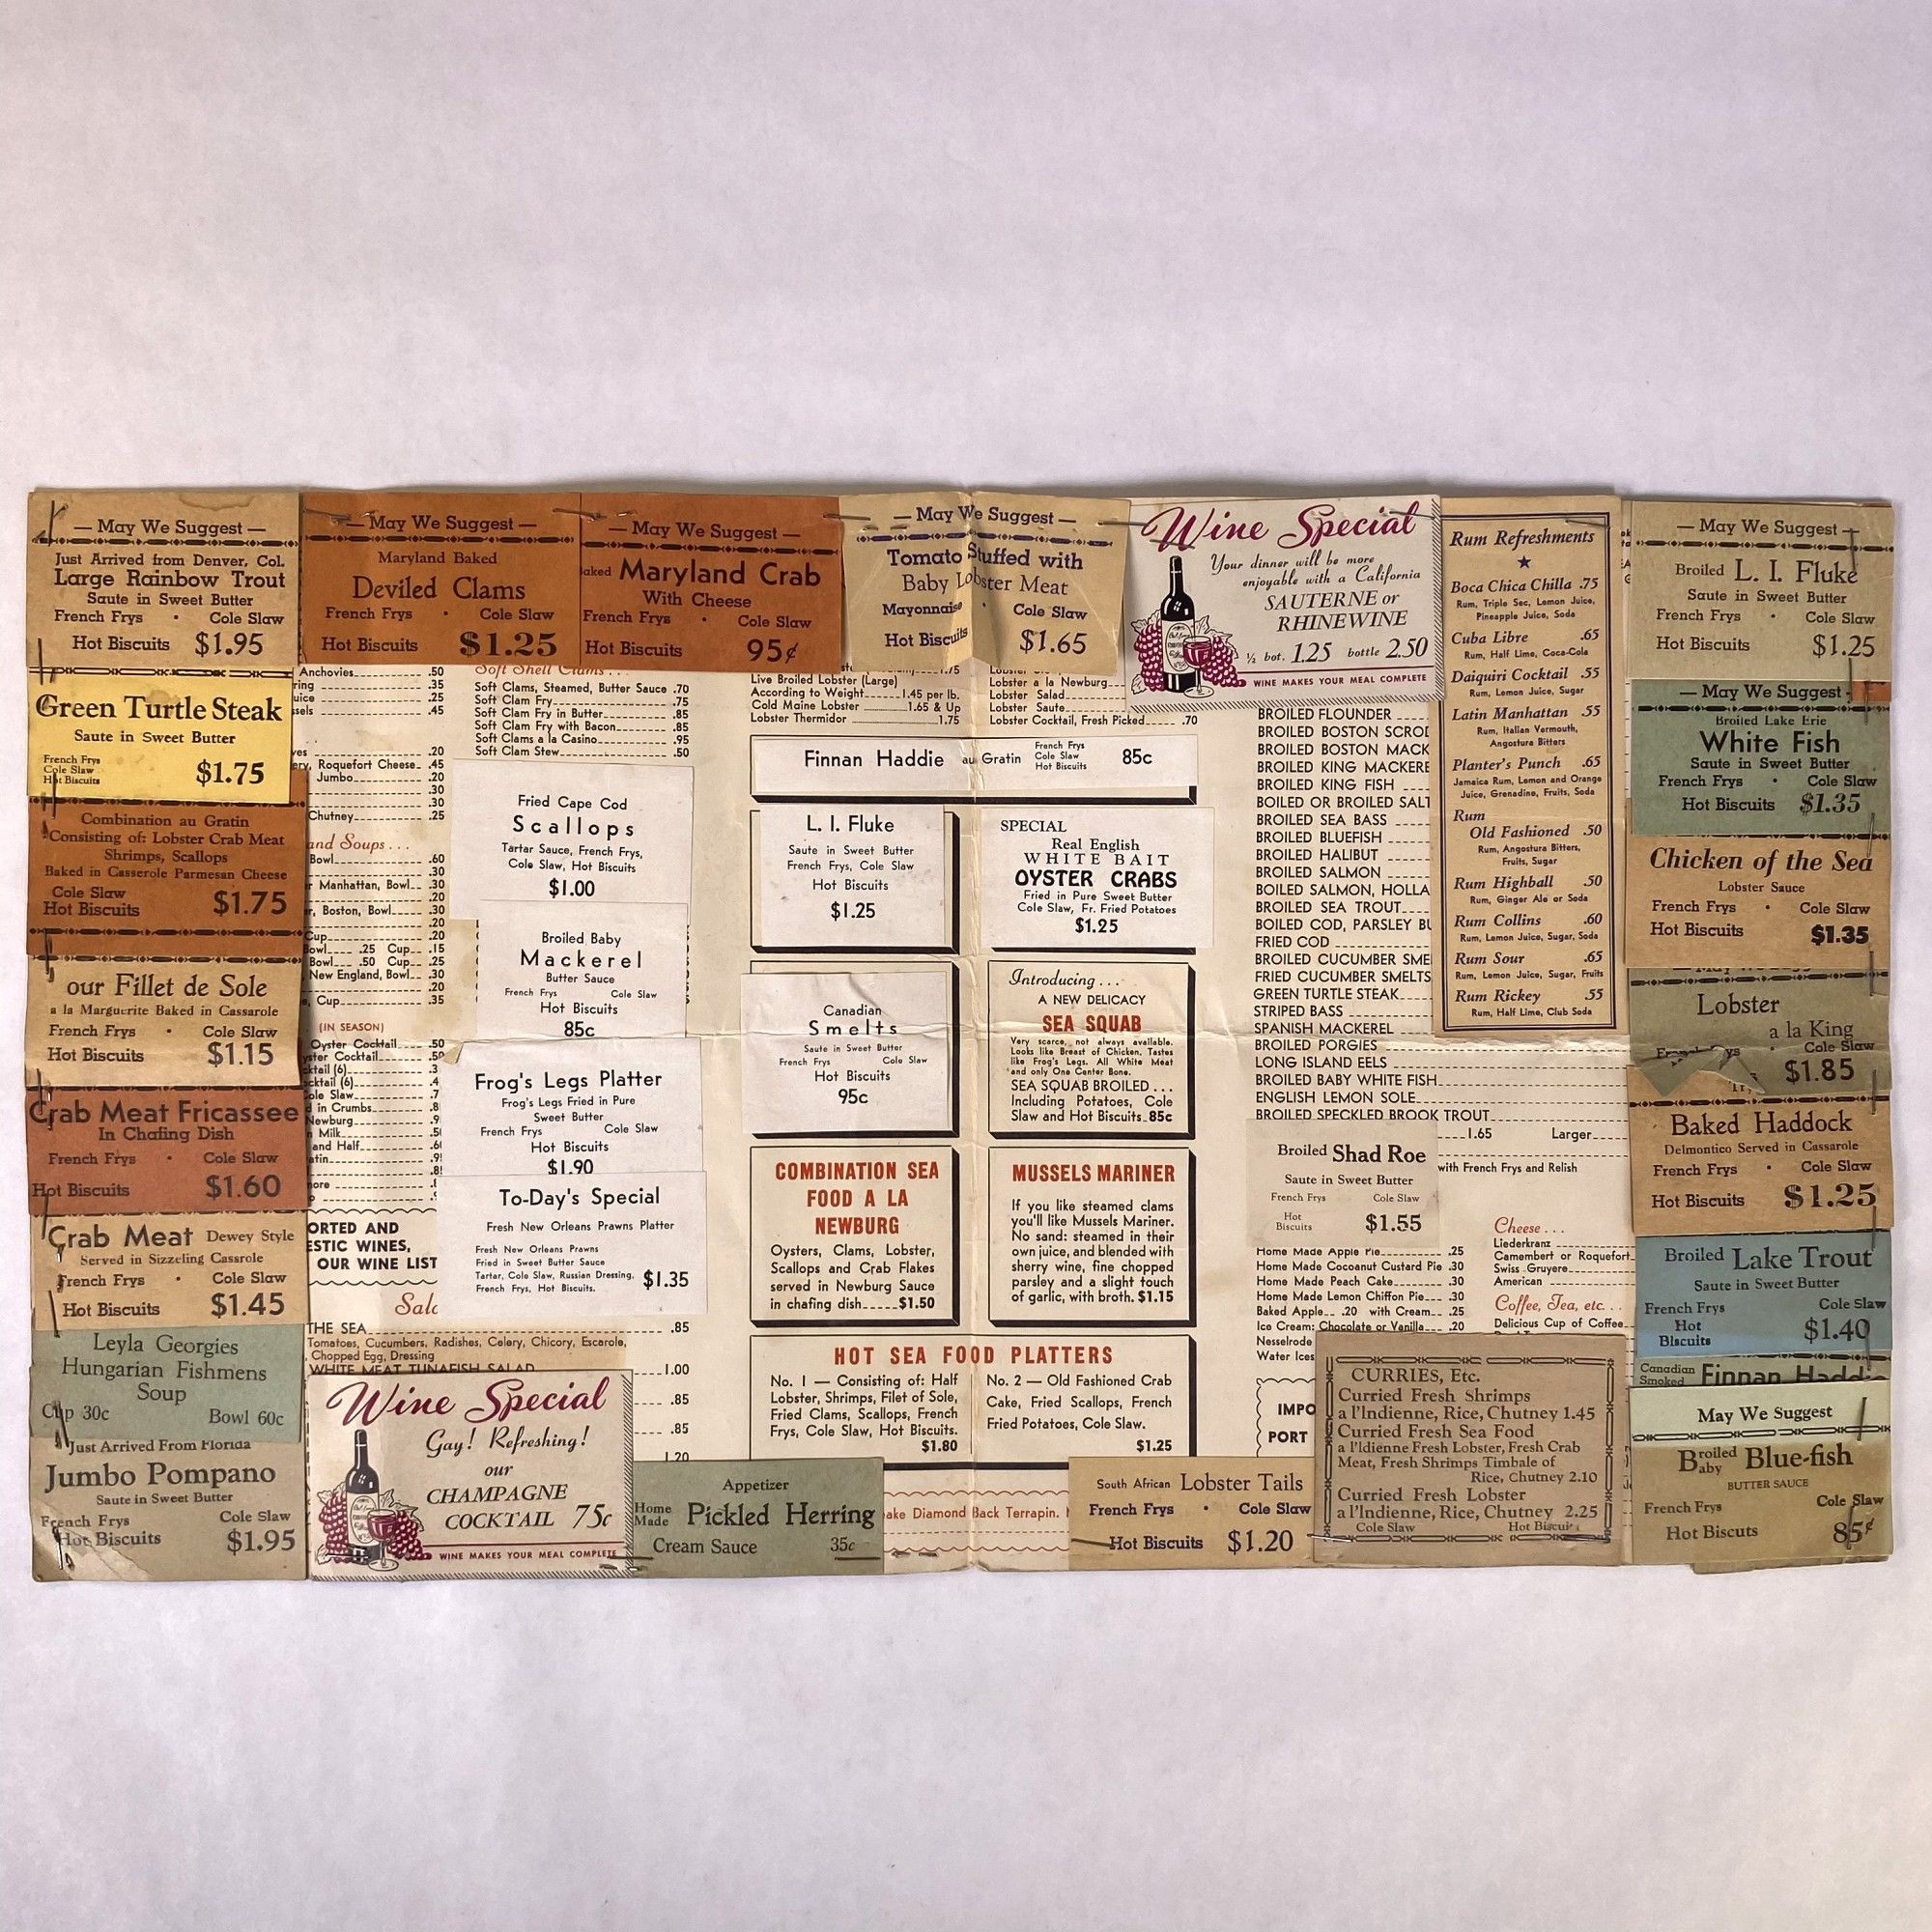 — May We Suggest —
Just Arrived from Denver, Col.
Large Rainbow Trout
Saute in Sweet Butter
French Frys • Cole Slaw
Hot Biscuits $1.95
Green Turtle Steak
Saute in Sweet Butter
French Frys
Cole Slaw
Hot Biscuits
$1.75
Combination au Gratin
Consisting of: Lobster Crab Meat
Shrimps, Scallops
Baked in Casserole Parmesan Cheese
Cole Slaw
Hot Biscuits $1.75
our Fillet de Sole
a la Marguerite Baked in Cassarole
French Frys • Cole Slaw
Hot Biscuits $1.15
Crab Meat Fricassee
In Chafing Dish
French Frys • Cole Slaw
Hot Biscuits $1.60
Crab Meat Dewey Style
Served in Sizzeling Cassrole
French Frys • Cole Slaw
Hot Biscuits $1.45
Leyla Georgies
Hungarian Fishmens
Soup
Cup 30c Bowl 60c
Just Arrived From Florida
Jumbo Pompano
Saute in Sweet Butter
French Frys Cole Slaw
Hot Biscuits $1.95
— May We Suggest —
Maryland Baked
Deviled Clams
French Frys • Cole Slaw
Hot Biscuits $1.25
— May We Suggest —
aked Maryland Crab
With Cheese
French Frys • Cole Slaw
Hot Biscuits 95¢
— May We Suggest —
Tomato Stuffed with
Baby Lobster Meat
Mayonnaise • Cole Slaw
Hot Biscuits $1.65
Wine Special
Your dinner will be more
enjoyable with a California
SAUTERNE or
RHINEWINE
½ bot. 1.25 bottle 2.50
WINE MAKES YOUR MEAL COMPLETE
Anchovies .50
ring .35
uice .25
sels .45
ves .20
ery, Roquefort Cheese .45
Jumbo .20
.30
.30
Chutney .25
and Soups . . .
Bowl .60
.30
r Manhattan, Bowl .30
.20
r, Boston, Bowl .30
Cup .20
Bowl .25 Cup .15
Bowl .50 Cup .25
New England, Bowl .30
.20
, Cup .35
(IN SEASON)
Oyster Cocktail .50
yster Cocktail .50
cktail (6)
cktail (6)
ole Slaw
d in Crumbs
Newburg
n Milk
and Half
atin
ore
ORTED AND
ESTIC WINES,
OUR WINE LIST
Soft Shell Clams . . .
Soft Clams, Steamed, Butter Sauce .70
Soft Clam Fry .75
Soft Clam Fry in Butter .85
Soft Clam Fry with Bacon .85
Soft Clams a la Casino .95
Soft Clam Stew .50
Fried Cape Cod
Scallops
Tartar Sauce, French Frys,
Cole Slaw, Hot Biscuits
$1.00
Broiled Baby
Mackerel
Butter Sauce
French Frys Cole Slaw
Hot Biscuits
85c
Frog's Legs Platter
Frog's Legs Fried in Pure
Sweet Butter
French Frys Cole Slaw
Hot Biscuits
$1.90
To-Day's Special
Fresh New Orleans Prawns Platter
Fresh New Orleans Prawns
Fried in Sweet Butter Sauce
Tartar, Cole Slaw, Russian Dressing,
French Frys, Hot Biscuits.
$1.35
Sala
THE SEA .85
Tomatoes, Cucumbers, Radishes, Celery, Chicory, Escarole,
, Chopped Egg, Dressing
WHITE MEAT TUNAFISH SALAD 1.00
.85
.85
1.20
Wine Special
Gay! Refreshing!
our
CHAMPAGNE
COCKTAIL 75c
WINE MAKES YOUR MEAL COMPLETE
Appetizer
Home
Made
Pickled Herring
Cream Sauce 35c
1.75
Live Broiled Lobster (Large)
According to Weight 1.45 per lb.
Cold Maine Lobster 1.65 & Up
Lobster Thermidor 1.75
Lobster a la Newburg
Lobster Salad
Lobster Saute
Lobster Cocktail, Fresh Picked .70
Finnan Haddie au Gratin
French Frys
Cole Slaw
Hot Biscuits
85c
L. I. Fluke
Saute in Sweet Butter
French Frys, Cole Slaw
Hot Biscuits
$1.25
SPECIAL
Real English
WHITE BAIT
OYSTER CRABS
Fried in Pure Sweet Butter
Cole Slaw, Fr. Fried Potatoes
$1.25
Canadian
Smelts
Saute in Sweet Butter
French Frys Cole Slaw
Hot Biscuits
95c
Introducing . . .
A NEW DELICACY
SEA SQUAB
Very scarce, not always available.
Looks like Breast of Chicken. Tastes
like Frog's Legs. All White Meat
and only One Center Bone.
SEA SQUAB BROILED . . .
Including Potatoes, Cole
Slaw and Hot Biscuits 85c
COMBINATION SEA
FOOD A LA
NEWBURG
Oysters, Clams, Lobster,
Scallops and Crab Flakes
served in Newburg Sauce
in chafing dish $1.50
MUSSELS MARINER
If you like steamed clams
you'll like Mussels Mariner.
No sand: steamed in their
own juice, and blended with
sherry wine, fine chopped
parsley and a slight touch
of garlic, with broth. $1.15
HOT SEA FOOD PLATTERS
No. 1 — Consisting of: Half
Lobster, Shrimps, Filet of Sole,
Fried Clams, Scallops, French
Frys, Cole Slaw, Hot Biscuits.
$1.80
No. 2 — Old Fashioned Crab
Cake, Fried Scallops, French
Fried Potatoes, Cole Slaw.
$1.25
ake Diamond Back Terrapin.
South African Lobster Tails
French Frys • Cole Slaw
Hot Biscuits $1.20
BROILED FLOUNDER
BROILED BOSTON SCROD
BROILED BOSTON MACK
BROILED KING MACKERE
BROILED KING FISH
BOILED OR BROILED SALT
BROILED SEA BASS
BROILED BLUEFISH
BROILED HALIBUT
BROILED SALMON
BOILED SALMON, HOLLA
BROILED SEA TROUT
BOILED COD, PARSLEY BU
FRIED COD
BROILED CUCUMBER SME
FRIED CUCUMBER SMELTS
GREEN TURTLE STEAK
STRIPED BASS
SPANISH MACKEREL
BROILED PORGIES
LONG ISLAND EELS
BROILED BABY WHITE FISH
ENGLISH LEMON SOLE
BROILED SPECKLED BROOK TROUT
1.65 Larger
with French Frys and Relish
Broiled Shad Roe
Saute in Sweet Butter
French Frys Cole Slaw
Hot
Biscuits
$1.55
Home Made Apple Pie .25
Home Made Cocoanut Custard Pie .30
Home Made Peach Cake .30
Home Made Lemon Chiffon Pie .30
Baked Apple .20 with Cream .25
Ice Cream: Chocolate or Vanilla .20
Nesselrode
Water Ices
IMPO
PORT
Cheese . . .
Liederkranz
Camembert or Roquefort
Swiss Gruyere
American
Coffee, Tea, etc. . .
Delicious Cup of Coffee
Rum Refreshments
★
Boca Chica Chilla .75
Rum, Triple Sec, Lemon Juice,
Pineapple Juice, Soda
Cuba Libre .65
Rum, Half Lime, Coca-Cola
Daiquiri Cocktail .55
Rum, Lemon Juice, Sugar
Latin Manhattan .55
Rum, Italian Vermouth,
Angostura Bitters
Planter's Punch .65
Jamaica Rum, Lemon and Orange
Juice, Grenadine, Fruits, Soda
Rum
Old Fashioned .50
Rum, Angostura Bitters,
Fruits, Sugar
Rum Highball .50
Rum, Ginger Ale or Soda
Rum Collins .60
Rum, Lemon Juice, Sugar, Soda
Rum Sour .65
Rum, Lemon Juice, Sugar, Fruits
Rum Rickey .55
Rum, Half Lime, Club Soda
CURRIES, Etc.
Curried Fresh Shrimps
a l'Indienne, Rice, Chutney 1.45
Curried Fresh Sea Food
a l'Idienne Fresh Lobster, Fresh Crab
Meat, Fresh Shrimps Timbale of
Rice, Chutney 2.10
Curried Fresh Lobster
a l'Indienne, Rice, Chutney 2.25
Cole Slaw Hot Biscui
— May We Suggest —
Broiled L. I. Fluke
Saute in Sweet Butter
French Frys • Cole Slaw
Hot Biscuits $1.25
— May We Suggest -
Broiled Lake Erie
White Fish
Saute in Sweet Butter
French Frys • Cole Slaw
Hot Biscuits $1.35
Chicken of the Sea
Lobster Sauce
French Frys • Cole Slaw
Hot Biscuits $1.35
Lobster
a la King
Cole Slaw
$1.85
Baked Haddock
Delmontico Served in Cassarole
French Frys • Cole Slaw
Hot Biscuits $1.25
Broiled Lake Trout
Saute in Sweet Butter
French Frys Cole Slaw
Hot
Biscuits
$1.40
Canadian
Smoked
Finnan Haddie
May We Suggest
Broiled
Baby
Blue-fish
BUTTER SAUCE
French Frys Cole Slaw
Hot Biscuts 85¢